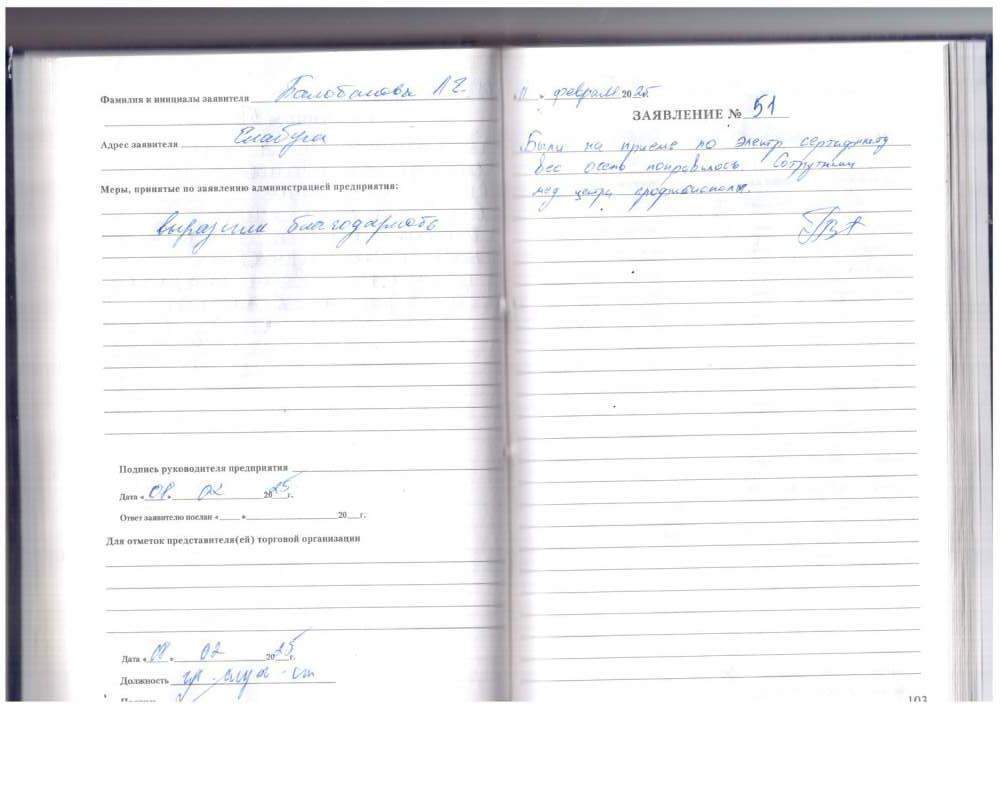 Фамилия и инициалы заявителя Балобанова Л Г.
Адрес заявителя Елабуга
Меры, принятые по заявлению администрацией предприятия:
выразили благодарность
Подпись руководителя предприятия
Дата «08» 02 2025г.
Ответ заявителю послан « » 20 г.
Для отметок представителя(ей) торговой организации
Дата «08» 02 2025г.
Должность
« » февраля 2025
ЗАЯВЛЕНИЕ № 51
Были на приеме по электр сертификату
Все осень понравилось. Сотрутники
мед центра
103